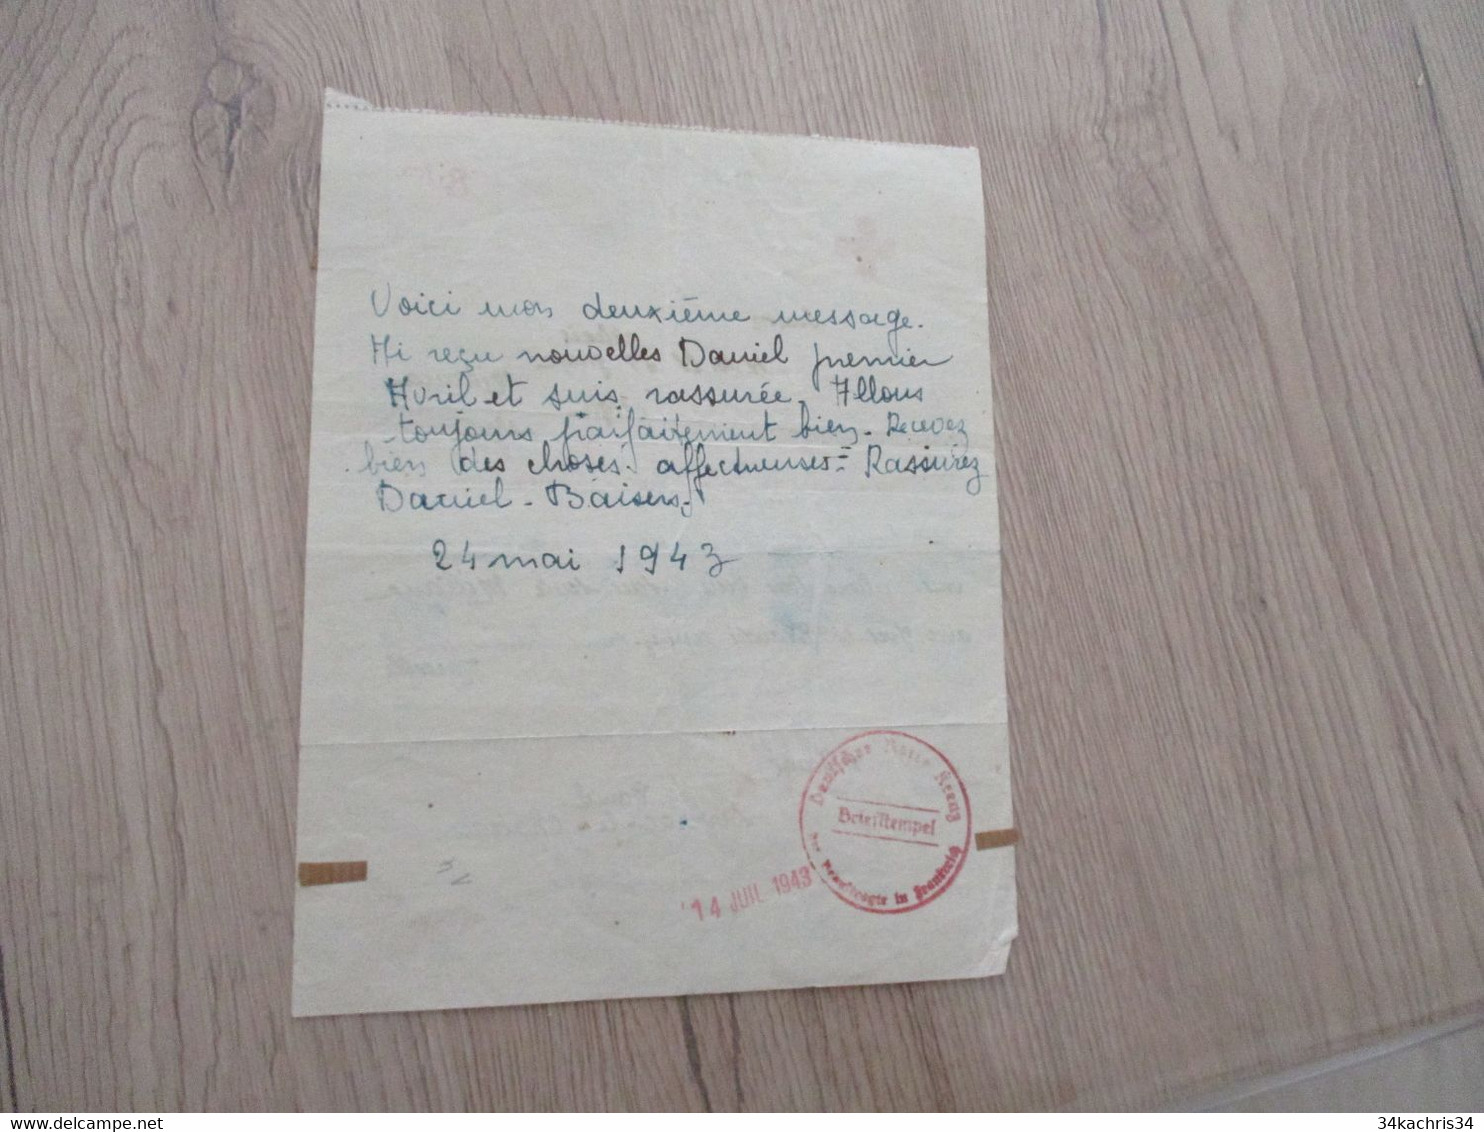 Voici mon deuxième message.
Ai reçu nouvelles Daniel premier
Avril et suis rassurée. Allons
toujours parfaitement bien - Recevez
bien des choses affectueuses - Rassurez
Daniel - Baisers.
24 mai 1943
Deutsches Rotes Kreuz
Briefstempel
Der Beauftragte in Frankreich
14 JUIL 1943
34kachris34